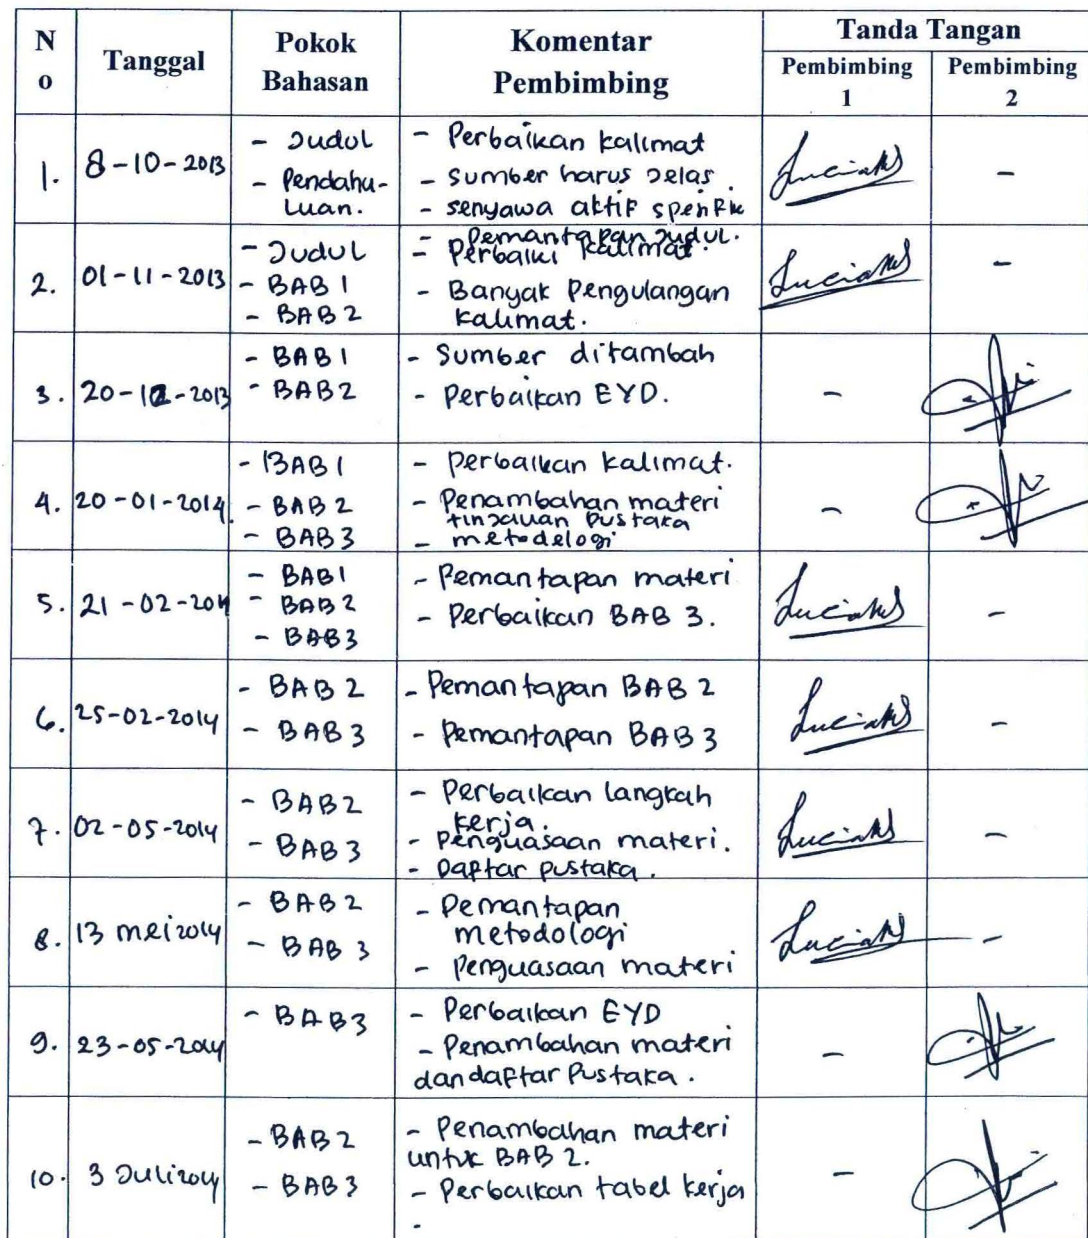 No Tanggal Pokok Bahasan Komentar Pembimbing Tanda Tangan
Pembimbing 1 Pembimbing 2
1. 8-10-2013
- Judul
- Pendahu-
luan.
- Perbaikan kalimat
- Sumber harus jelas.
- senyawa aktif spesifik
- Pemantapan Judul.
-
2. 01-11-2013
- Judul
- BAB 1
- BAB 2
- Perbaiki kalimat.
- Banyak Pengulangan
kalimat.
-
3. 20-12-2013
- BAB 1
- BAB 2
- Sumber ditambah
- Perbaikan EYD.
-
4. 20-01-2014.
- BAB 1
- BAB 2
- BAB 3
- perbaikan kalimat.
- Penambahan materi
tinjauan Pustaka
- metodelogi
-
5. 21-02-2014
- BAB 1
- BAB 2
- BAB 3
- Pemantapan materi
- Perbaikan BAB 3.
-
6. 25-02-2014
- BAB 2
- BAB 3
- Pemantapan BAB 2
- Pemantapan BAB 3
-
7. 02-05-2014
- BAB 2
- BAB 3
- Perbaikan langkah
kerja.
- Penguasaan materi.
- Daftar pustaka.
-
8. 13 mei 2014
- BAB 2
- BAB 3
- Pemantapan
metodologi
- Penguasaan materi
-
9. 23-05-2014
- BAB 3
- Perbaikan EYD
- Penambahan materi
dan daftar Pustaka.
-
10. 3 Juli 2014
- BAB 2
- BAB 3
- Penambahan materi
untuk BAB 2.
- Perbaikan tabel kerja
.
-